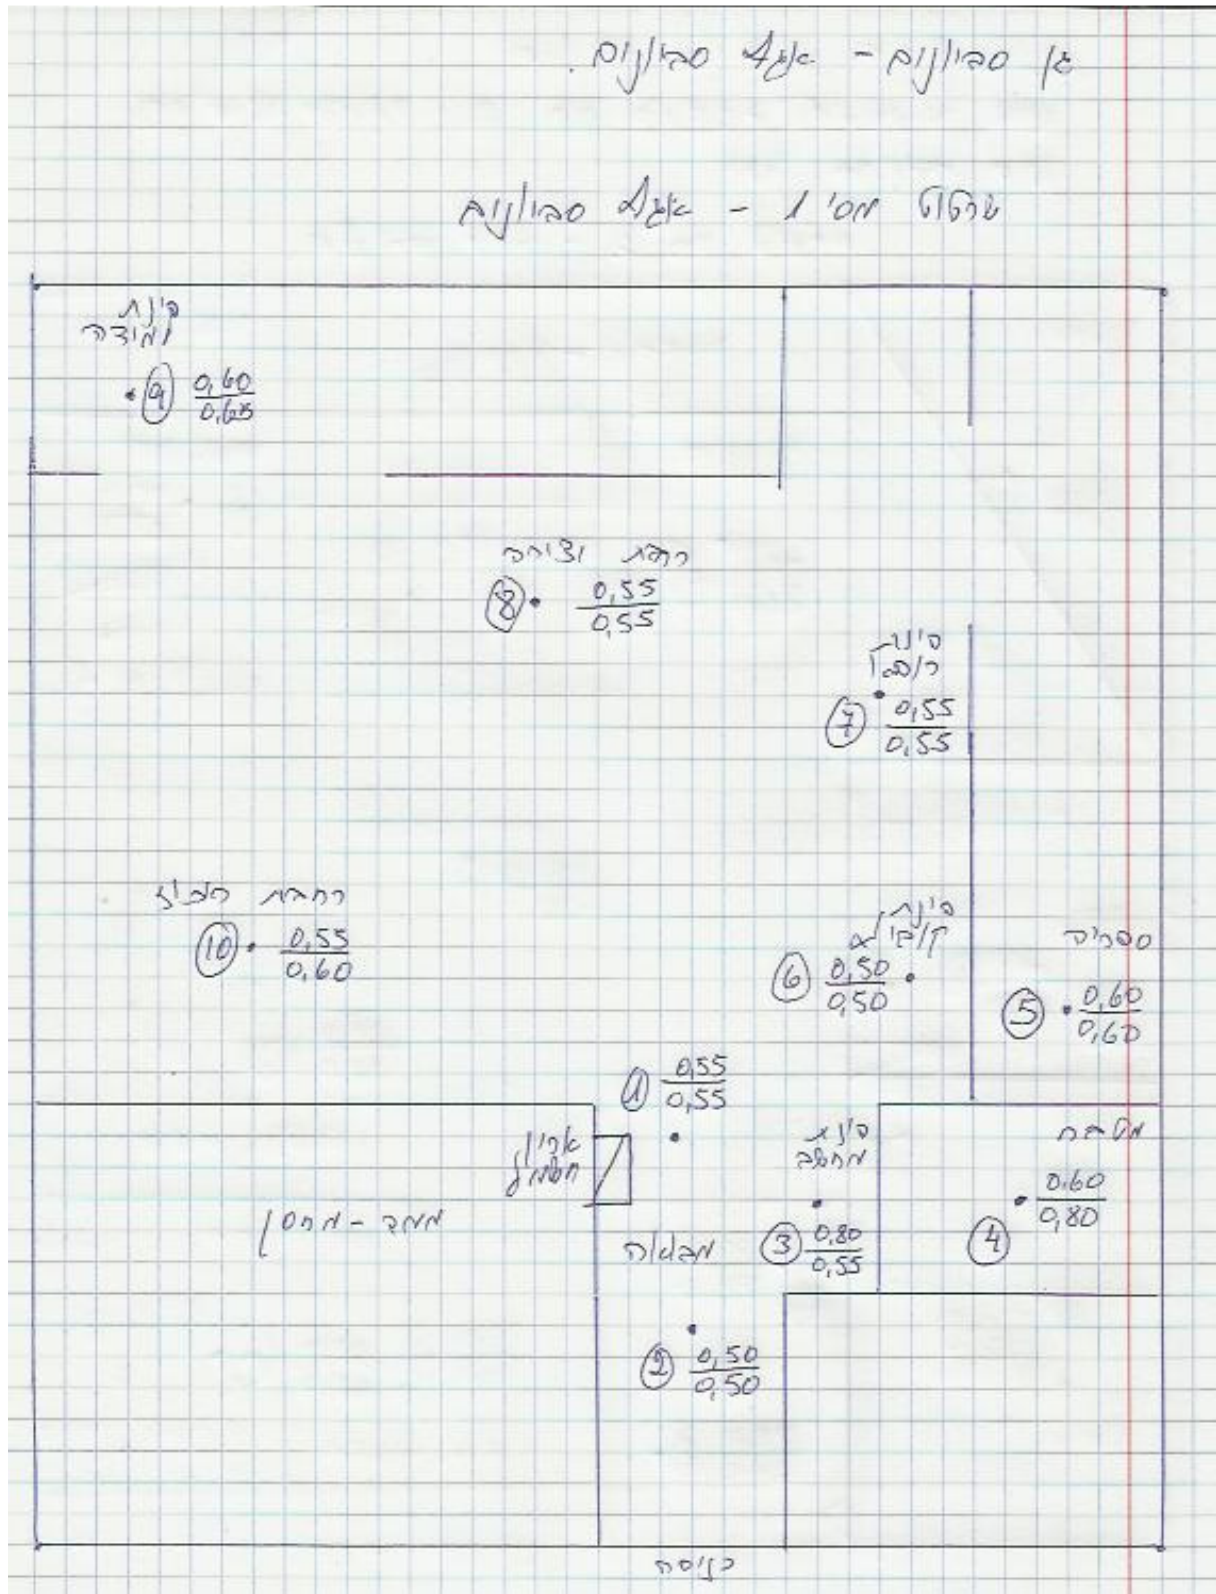 גן סביונים - אגף סביונים.
שרטוט מס' 1 - אגף סביונים
פינת
למידה
9 0,60
0,65
רחבת יצירה
8 0,55
0,55
פינת
7 0,55
0,55
רחבת ריכוז
10 0,55
0,60
פינת
6 0,50
0,50
ספריה
5 0,60
0,60
1 0,55
0,55
ארון
חשמל
פינת
מחשב
3 0,80
0,55
מטבח
4 0,60
0,80
ממד - מחסן
מבואה
2 0,50
0,50
כניסה